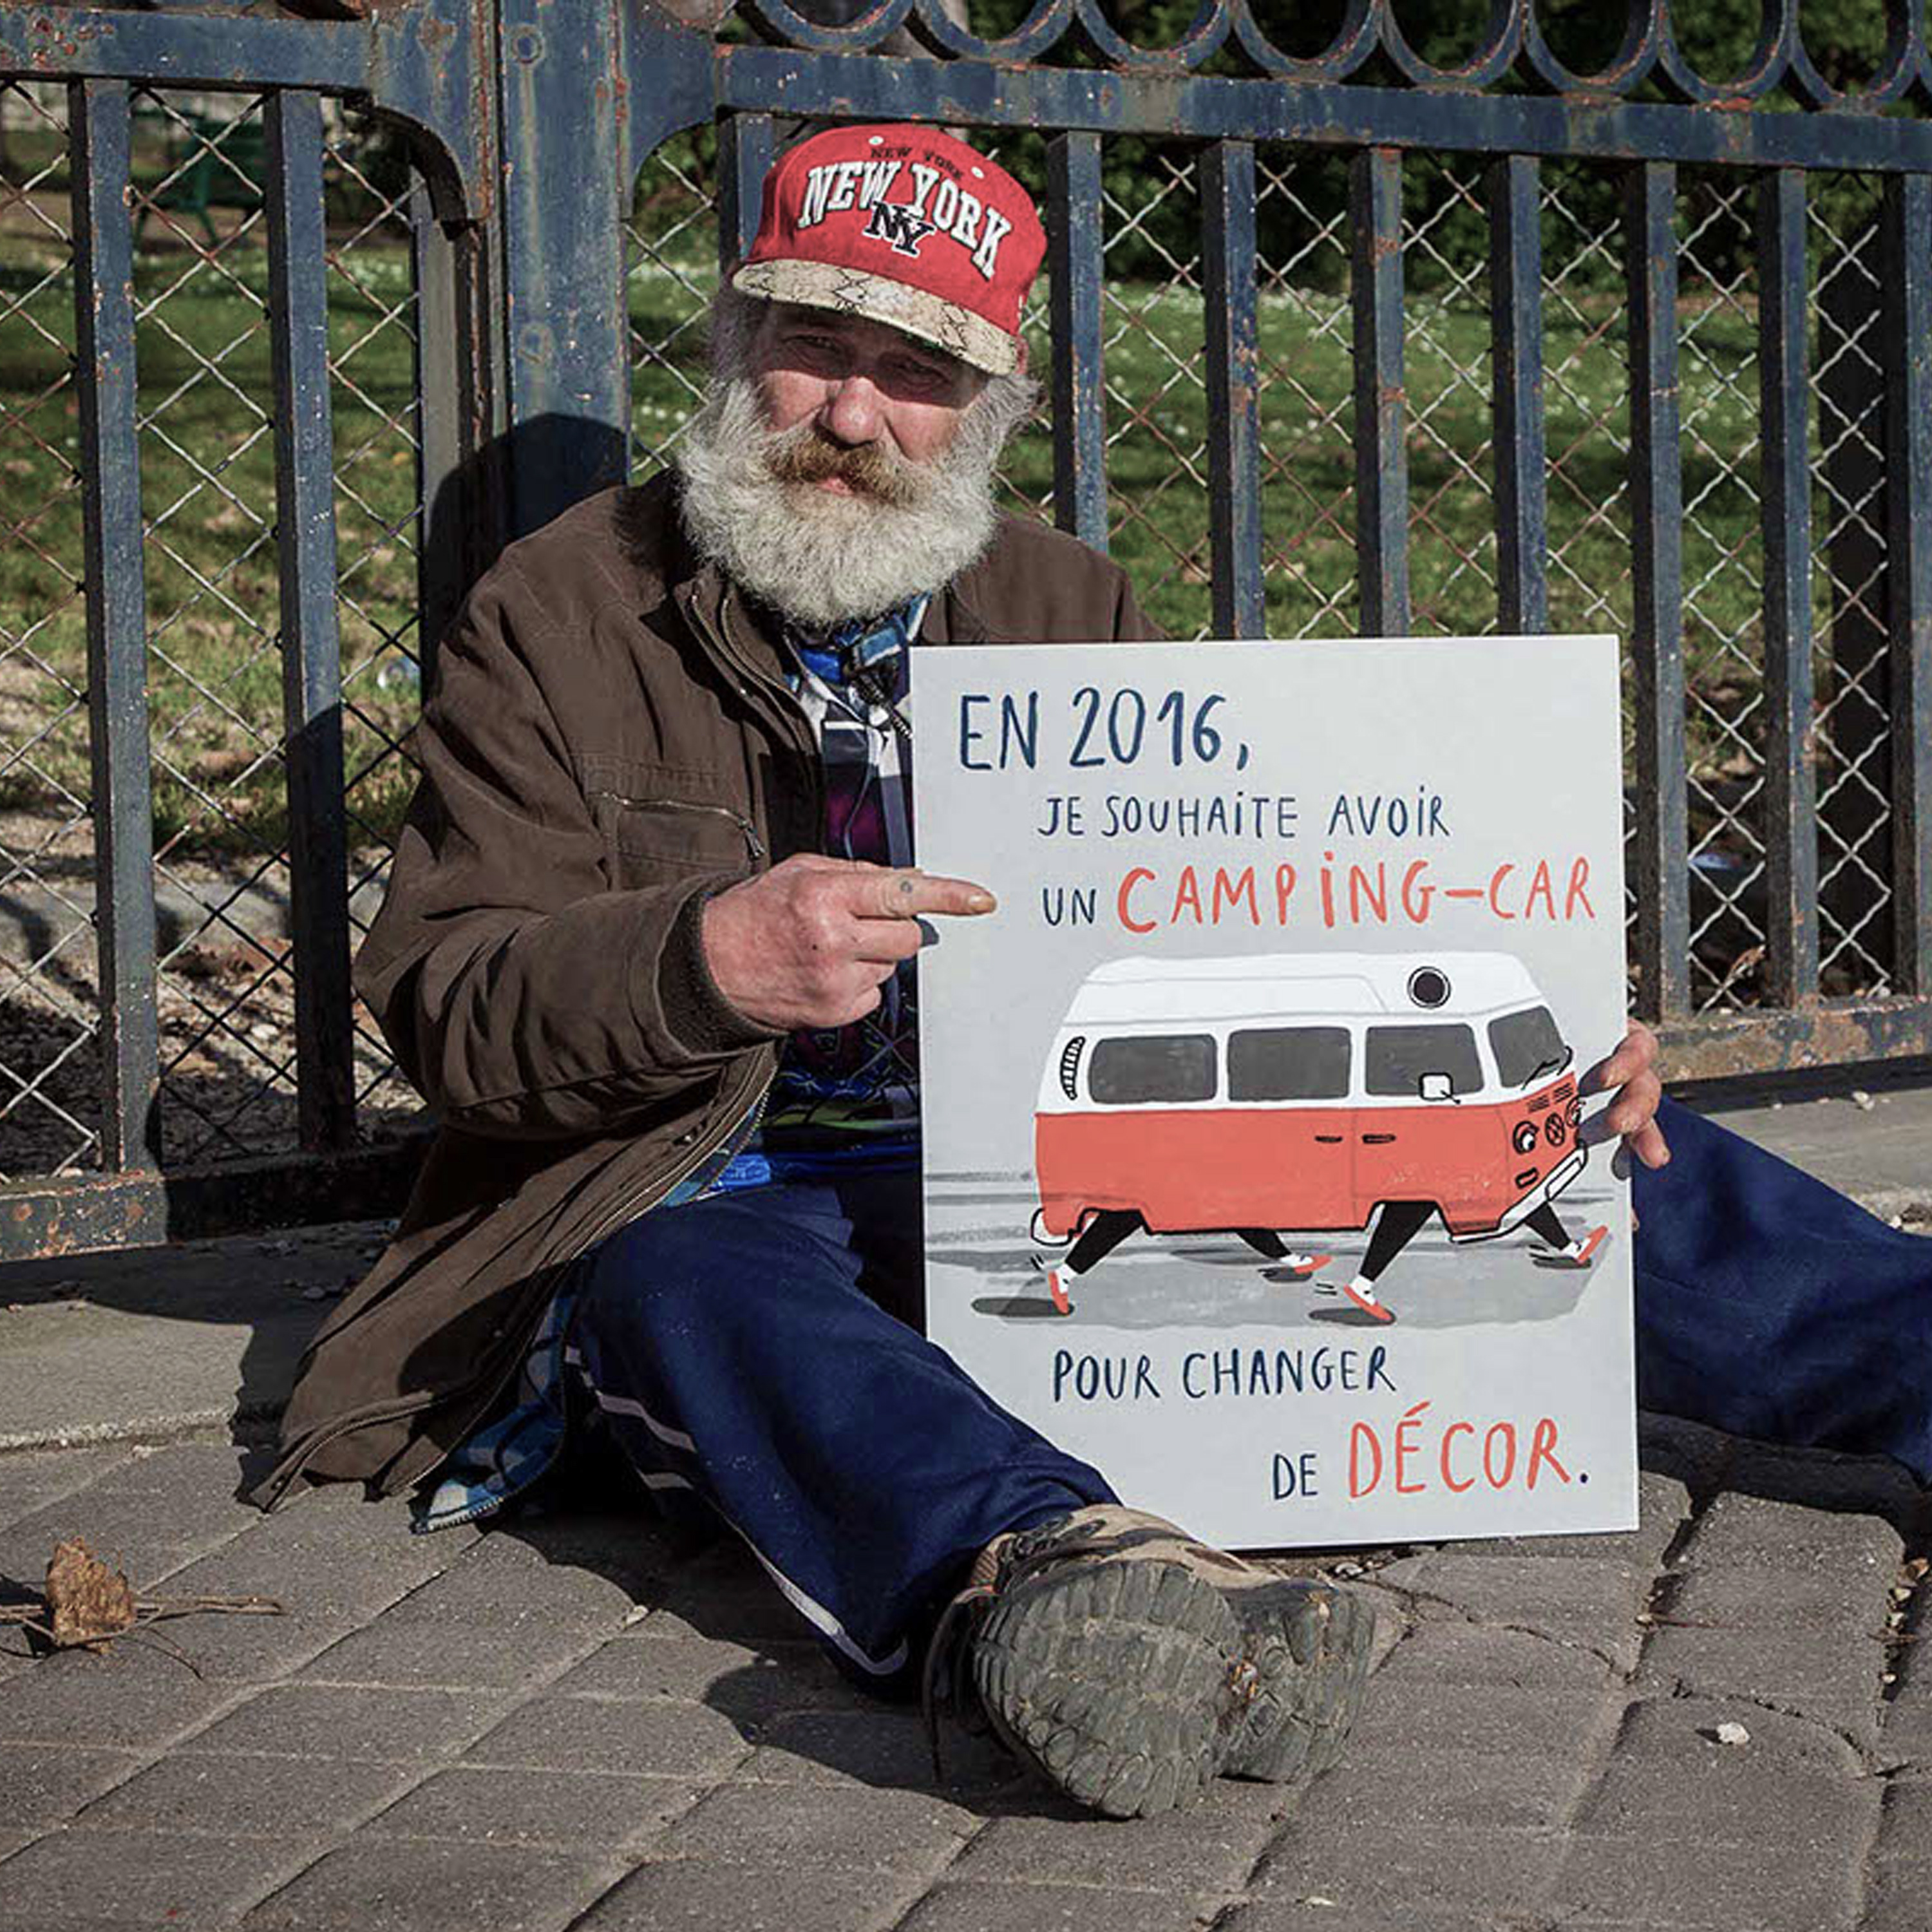 NEW YORK
NEW YORK
NY
EN 2016,
JE SOUHAITE AVOIR
UN CAMPING-CAR
POUR CHANGER
DE DÉCOR.